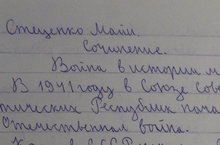 Стеценко Майи.
Сочинение.
Война в истории м
В 1941 году в Союзе Сове
тических Республик нача
Отечественная война.